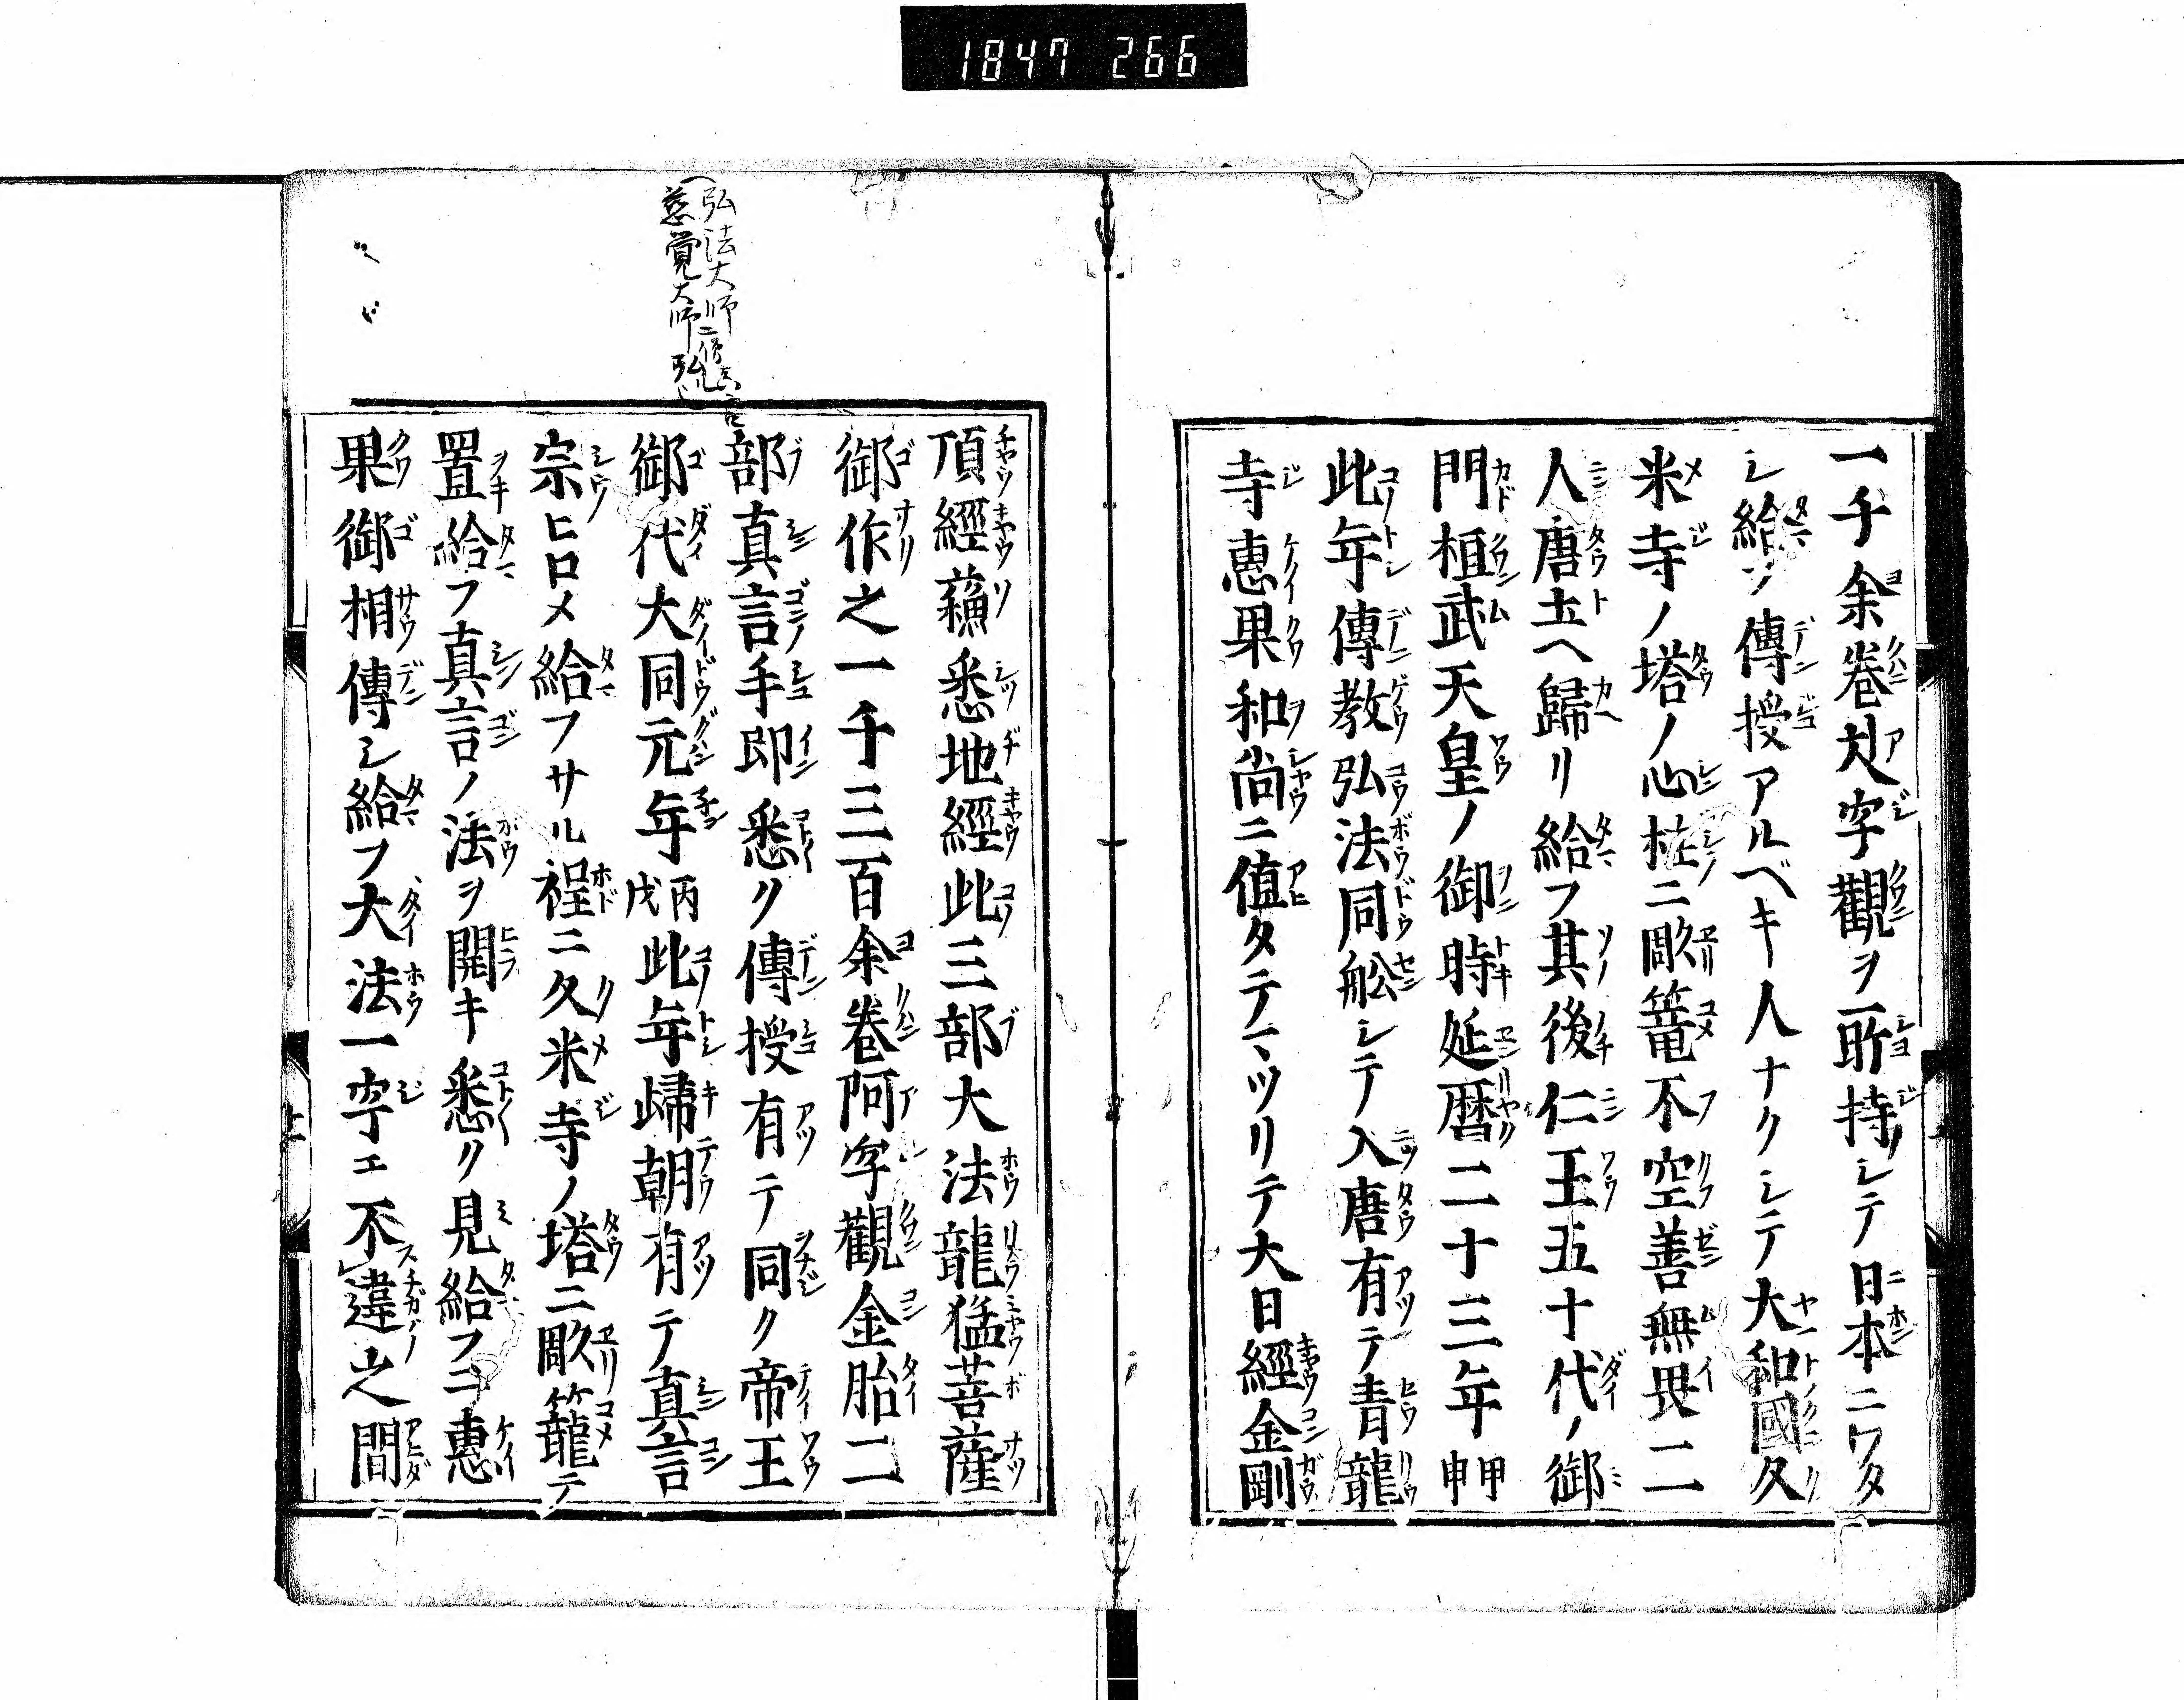 1847 266
一千余巻𠀋字觀ヲ一所持シテ日本ニワタ
シ給ソ傳授アルベキ人ナクシテ大和國久
米寺ノ塔ノ心柱ニ彫篭不空善無畏二
人唐土ヘ歸リ給フ其後仁王五十代ノ御
門桓武天皇ノ御時延暦二十三年甲申
此年傳教弘法同舩シテ入唐有テ青龍
寺惠果和尚ニ値タテマツリテ大日經金剛
弘法大師
慈覚大師
頂經蘓悉地經此三部大法龍猛菩薩
御作之一千三百余巻阿字觀金胎二
部真言手即悉ク傳授有テ同ク帝王
御代大同元年丙戌此年歸朝有テ真言
宗ヒロメ給フサル程ニ久米寺ノ塔ニ彫籠テ
置給フ真言ノ法ヲ開キ悉ク見給フニ惠
果御相傳シ給フ大法一字エ不違之間